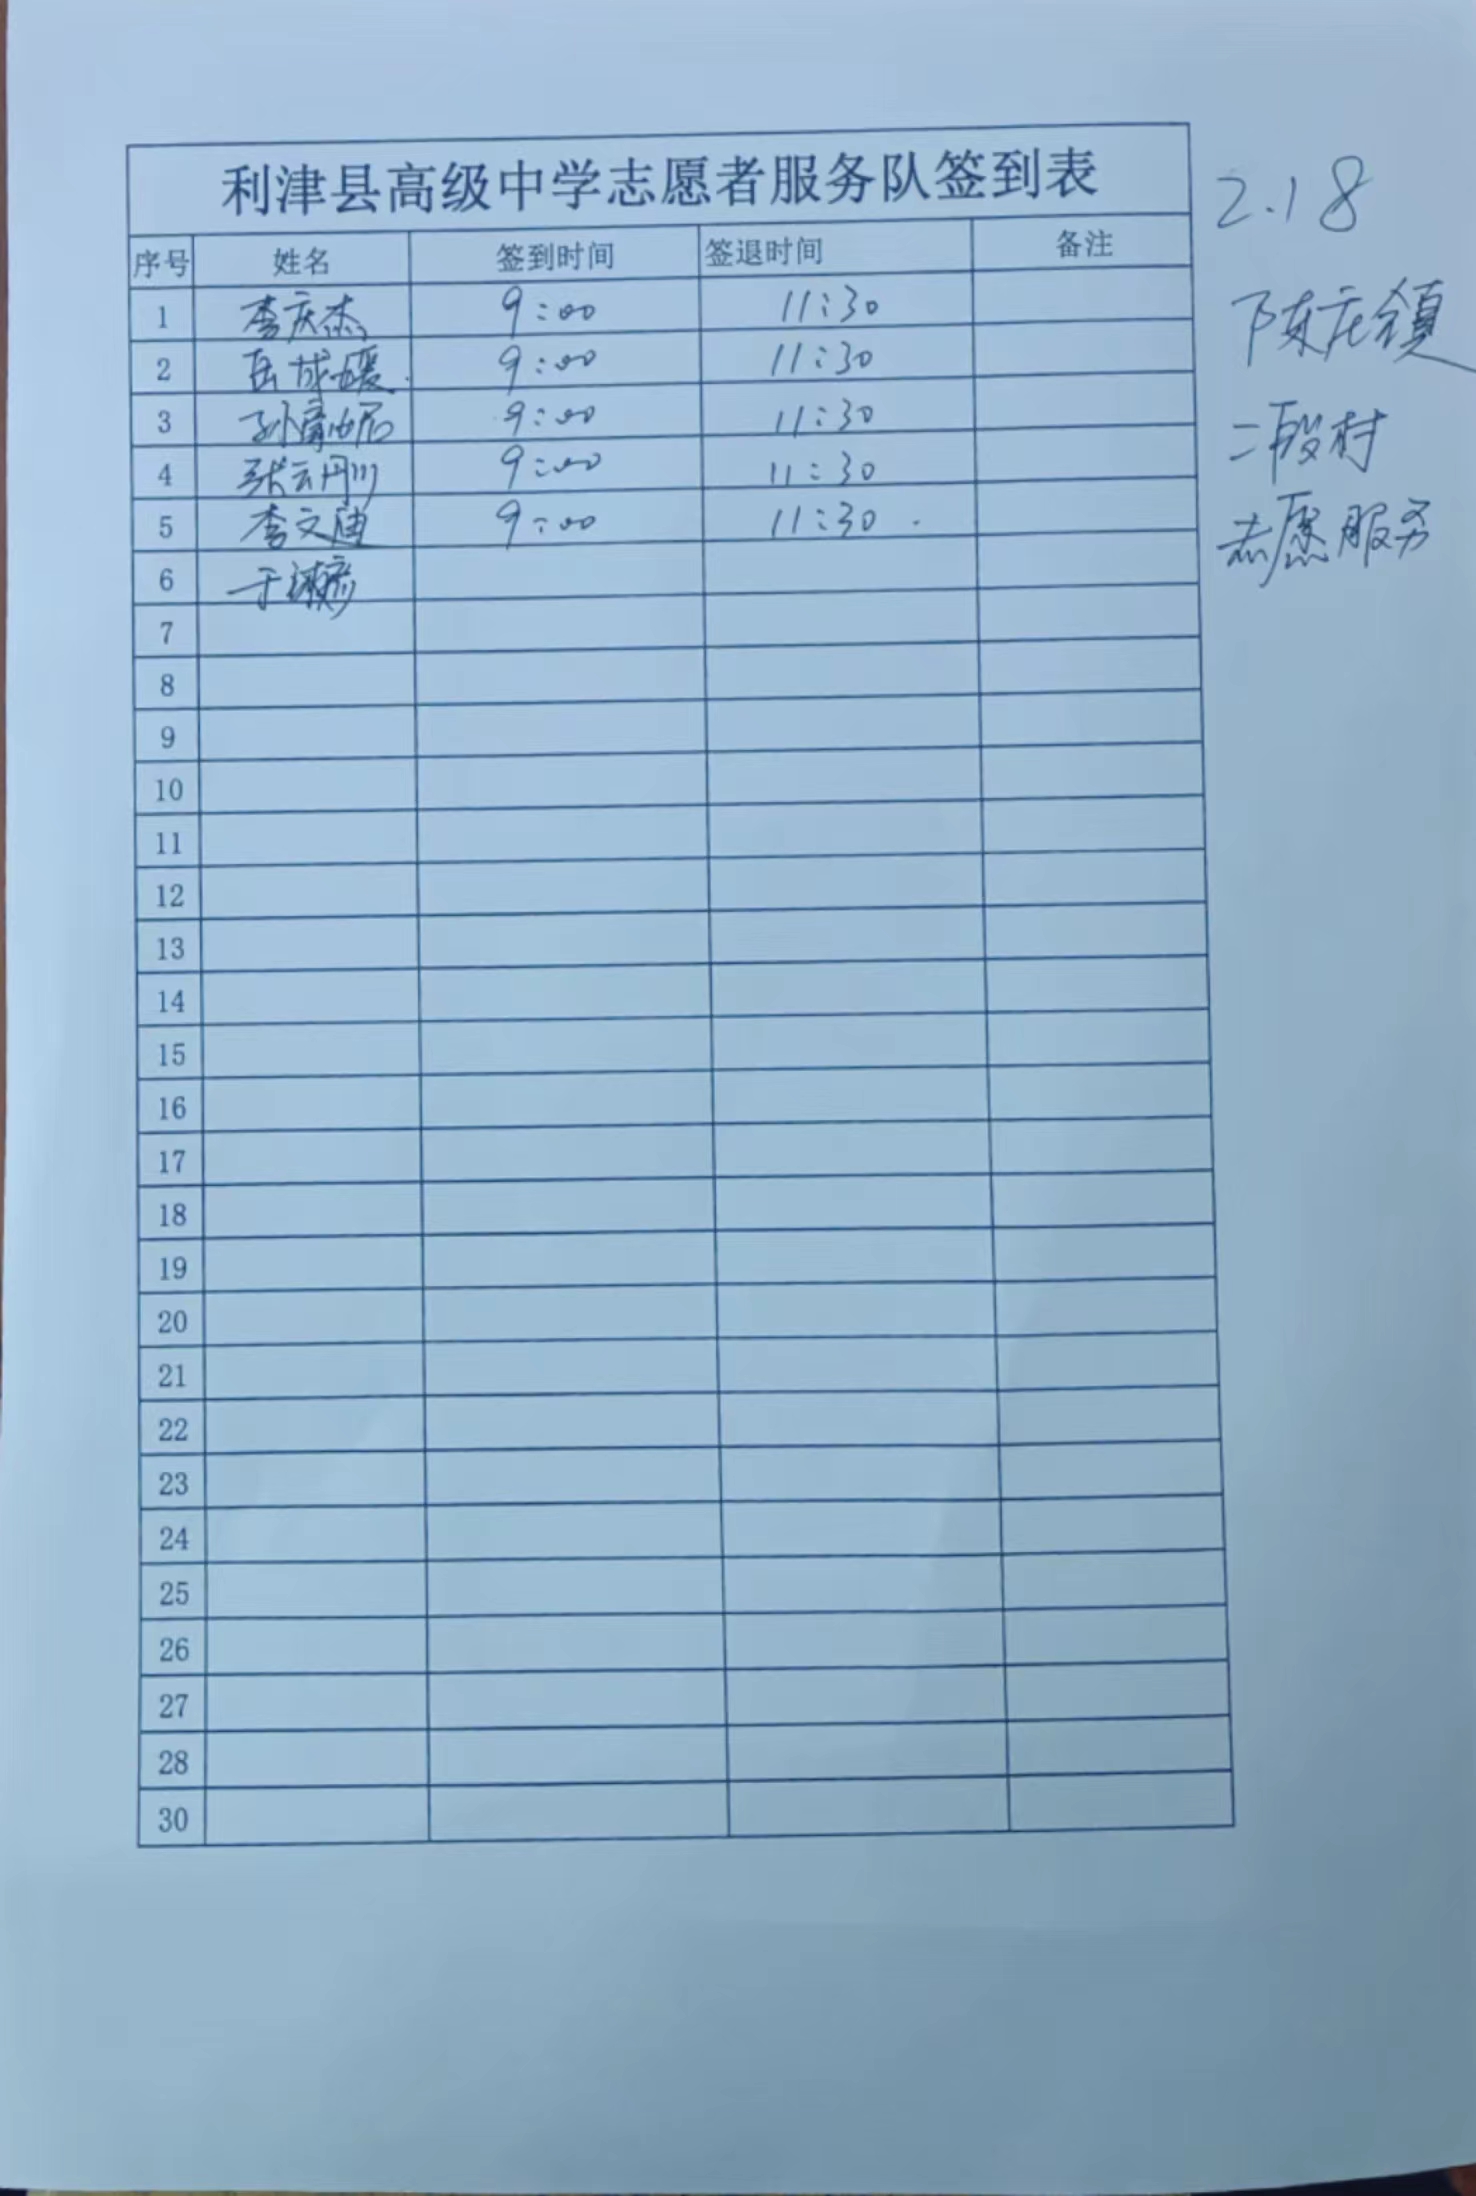 利津县高级中学志愿者服务队签到表
2.18
陈庄镇
二段村
志愿服务
序号 姓名 签到时间 签退时间 备注
1 李庆杰 9:00 11:30
2 岳成媛 9:00 11:30
3 9:00 11:30
4 9:00 11:30
5 李文迪 9:00 11:30
6
7
8
9
10
11
12
13
14
15
16
17
18
19
20
21
22
23
24
25
26
27
28
30